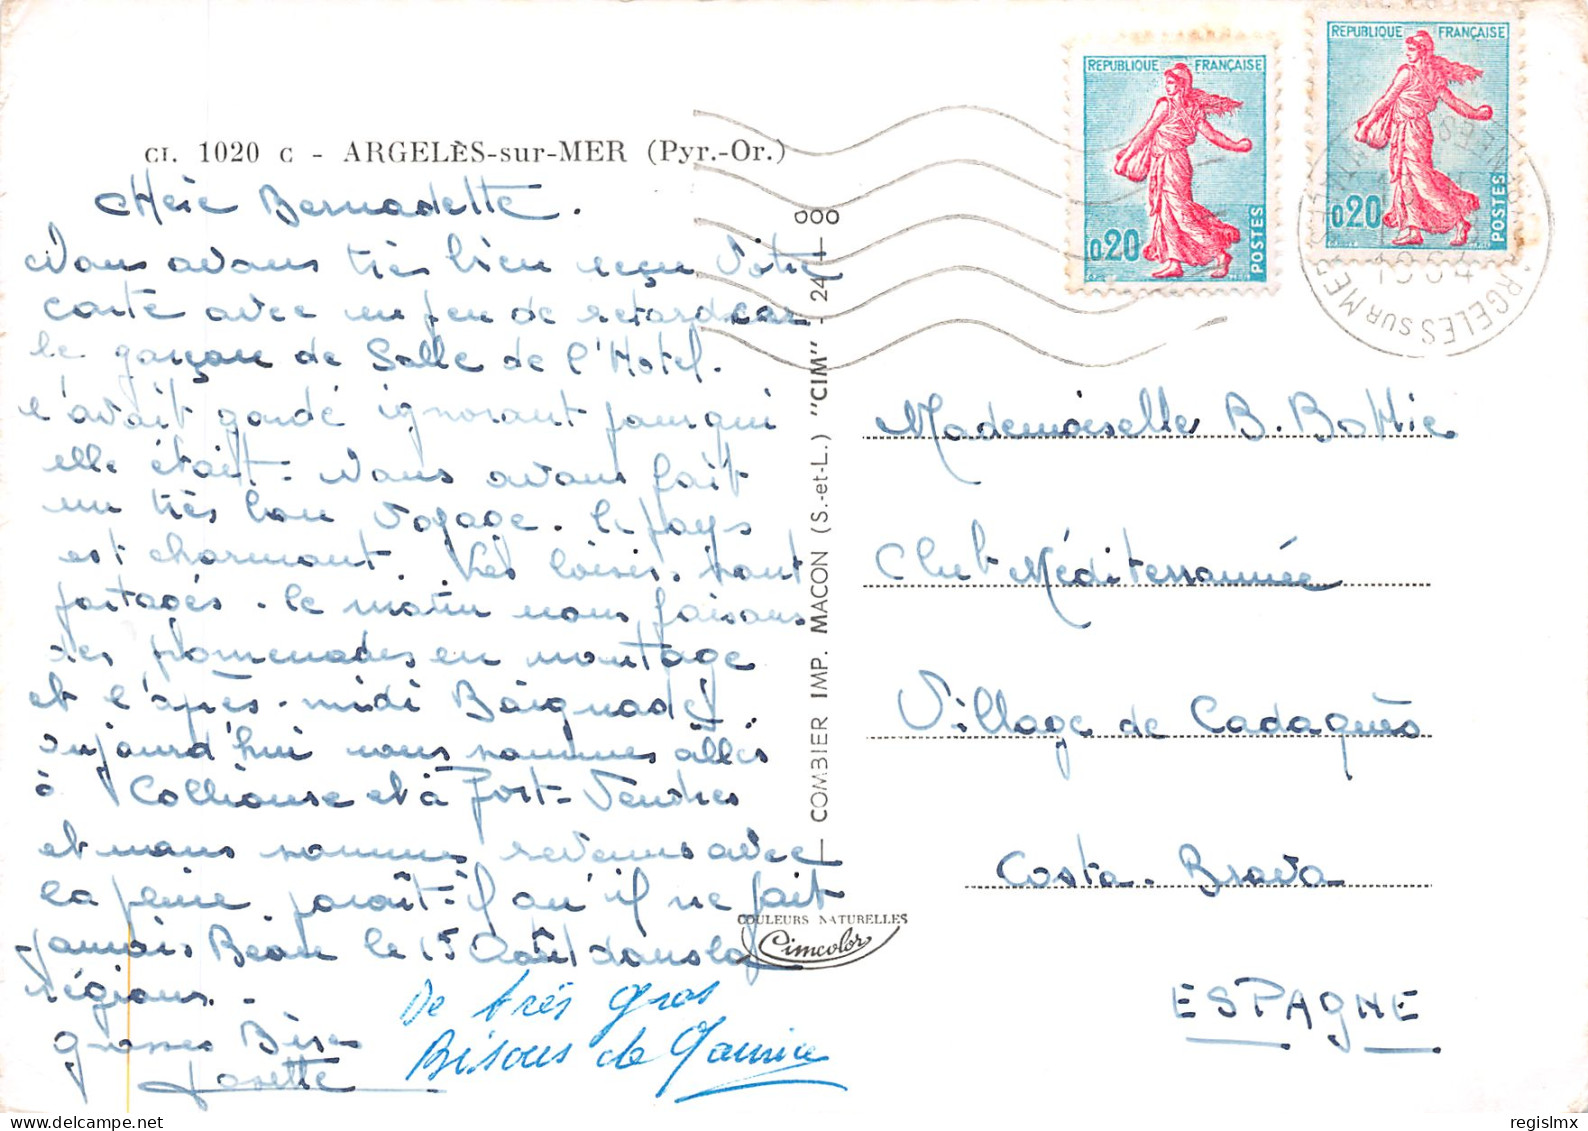 CI. 1020 C - ARGELÈS-sur-MER (Pyr.-Or.)
chère Bernadette.
Nous avons très bien reçu Votre
carte avec un peu de retard car
le garçon de Salle de l'Hotel.
l'avait gardé ignorant pour qui
elle était - Nous avons fait
un très bon Voyage. le pays
est charmant. Les loisirs sont
partagés. le matin nous faisons
des promenades en montage
et l'après-midi Baignades.
aujourd'hui nous sommes allés
à Collioure et à Port-Vendres
et nous sommes revenus avec
la pluie paraît-il qu'il ne fait
jamais Beau le 15 Août dans la
régions.-
grosses Bises
Josette
De très gros
Bisous de Maurice
COMBIER IMP. MACON (S.-et-L.) "CIM"
COULEURS NATURELLES
Cimcolor
REPUBLIQUE FRANÇAISE
0,20
POSTES
REPUBLIQUE FRANÇAISE
0,20
POSTES
ARGELES SUR MER
1964
Mademoiselle B. Bottie
Club Méditerrannée
Village de Cadaquès
Costa-Brava
ESPAGNE
regislmx